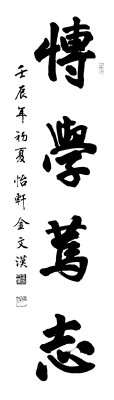 博學篤志
壬辰年初夏 怡軒 金文漢